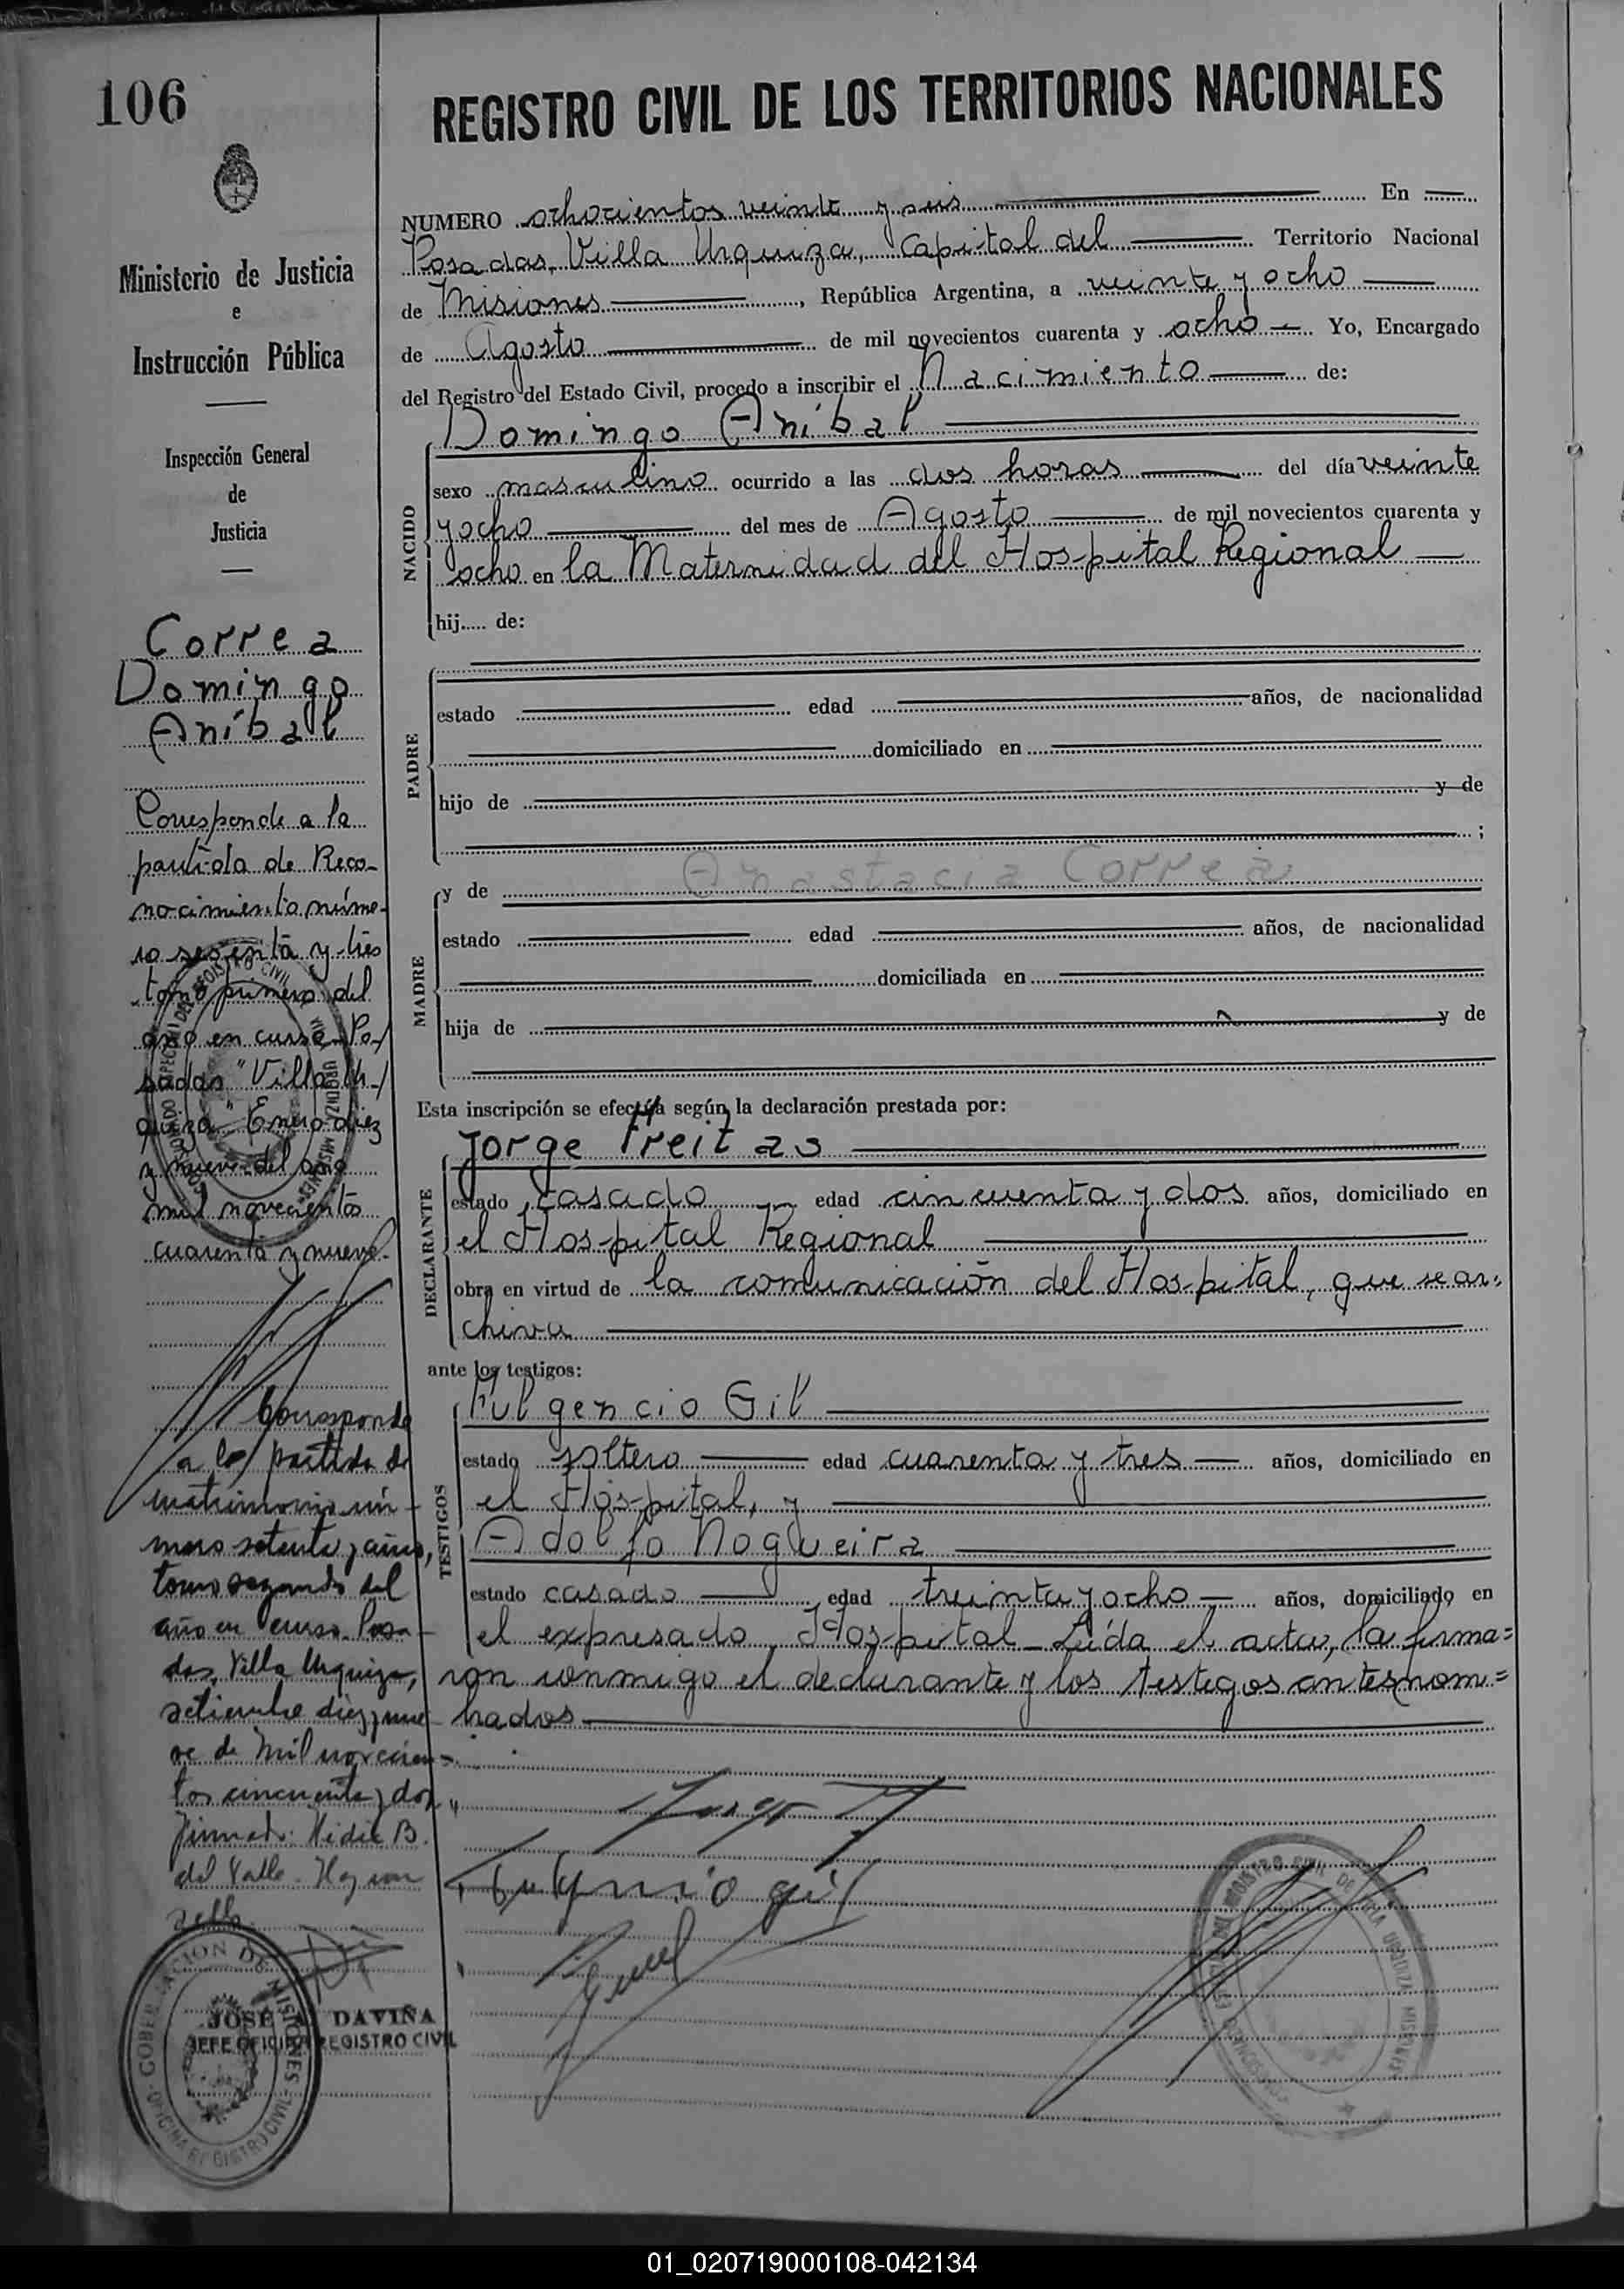 106
Ministerio de Justicia
e
Instrucción Pública
Inspección General
de
Justicia
Correa
Domingo
Aníbal
Corresponde a la
partida de Reco-
nocimiento núme-
ro sesenta y tres
tomo primero del
año en curso Po-
sadas "Villa Ur-
quiza" Enero diez
y nueve del año
mil novecientos
cuarenta y nueve.-
Corresponde
a la partida de
matrimonio nú-
mero setenta y cinco,
tomo segundo del
año en curso. Posa-
das, Villa Urquiza,
setiembre diez y nue-
ve de mil novecien-
tos cincuenta y dos
firmado: Hidie B.
del Valle. Hay un
sello
GOBERNACION DE MISIONES
OFICINA REGISTRO CIVIL
JOSÉ DAVIÑA
JEFE OFICINA REGISTRO CIVIL
REGISTRO CIVIL DE LOS TERRITORIOS NACIONALES
NUMERO ochocientos veinte y seis En
Posadas, Villa Urquiza, Capital del Territorio Nacional
de Misiones, República Argentina, a veinte y ocho
de Agosto de mil novecientos cuarenta y ocho Yo, Encargado
del Registro del Estado Civil, procedo a inscribir el Nacimiento de:
NACIDO
Domingo Aníbal
sexo masculino ocurrido a las dos horas del día veinte
y ocho del mes de Agosto de mil novecientos cuarenta y
ocho en la Maternidad del Hospital Regional
hij..... de:
PADRE
estado edad años, de nacionalidad
domiciliado en
hijo de y de
;
MADRE
y de Anastacia Correa
estado edad años, de nacionalidad
domiciliada en
hija de y de
Esta inscripción se efectúa según la declaración prestada por:
DECLARANTE
Jorge Freitas
estado casado edad cincuenta y dos años, domiciliado en
el Hospital Regional
obra en virtud de la comunicación del Hospital, que se ar=
chiva
ante los testigos:
TESTIGOS
Fulgencio Gil
estado soltero edad cuarenta y tres años, domiciliado en
el Hospital, y
Adolfo Nogueira
estado casado edad treinta y ocho años, domiciliado en
el expresado Hospital - Leída el acta, la firma=
ron conmigo el declarante y los testigos antes nom=
brados
Fulgencio Gil
01_020719000108-042134